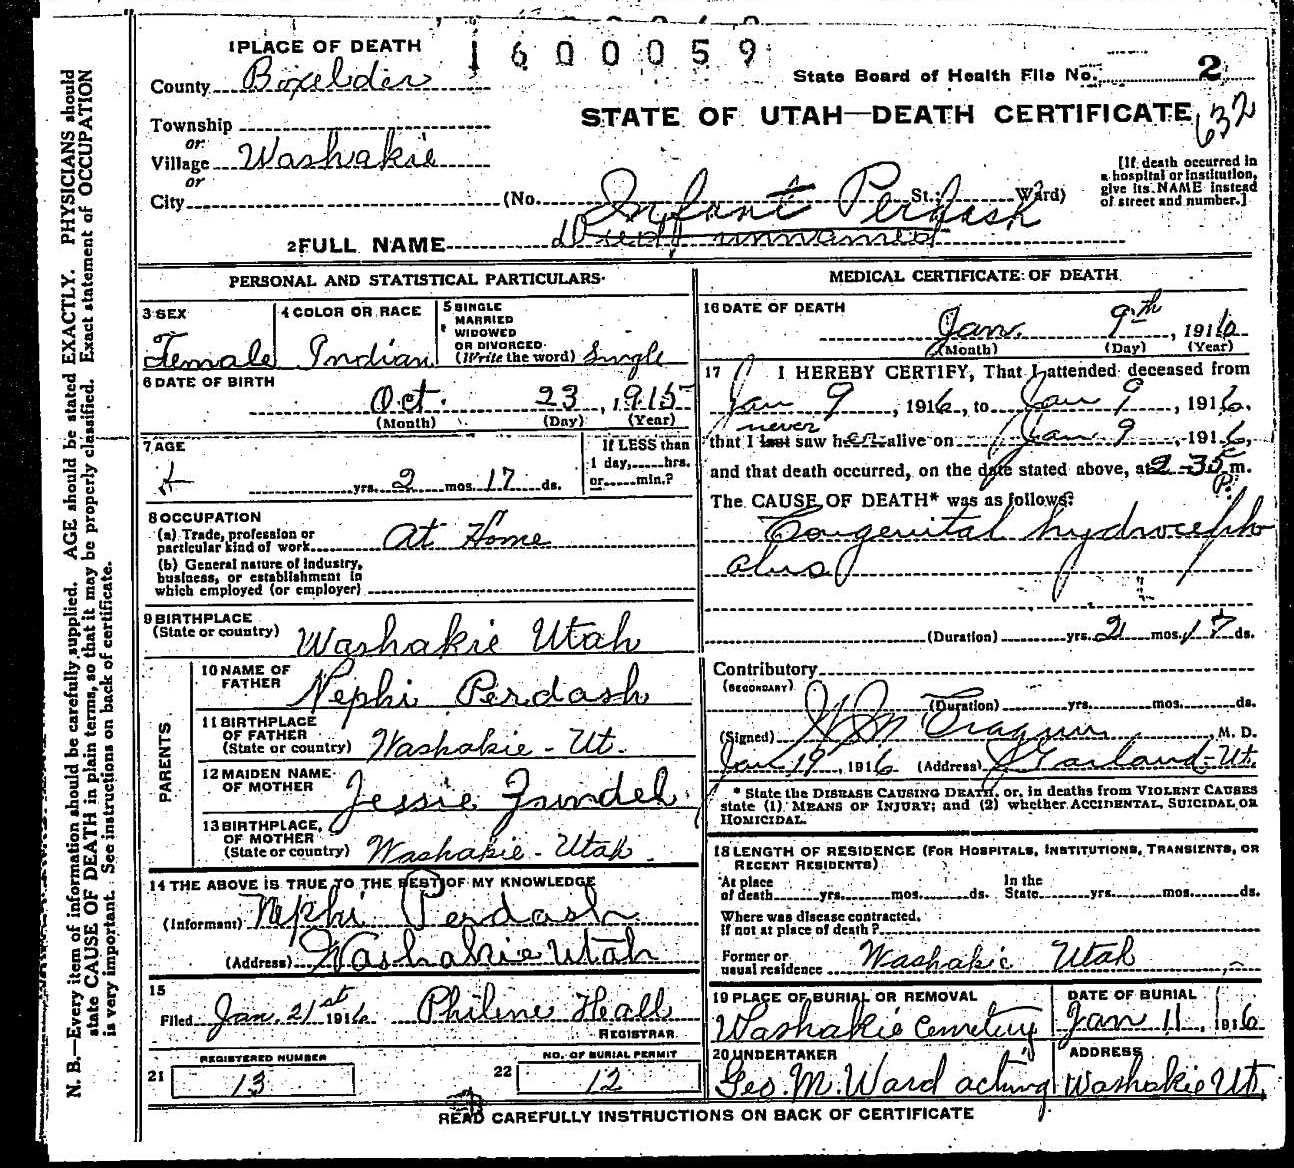 1 PLACE OF DEATH
1600059
County Boxelder
State Board of Health File No. 2
STATE OF UTAH—DEATH CERTIFICATE
632
Township
or
Village Washakie
or
City (No. St.; Ward)
[If death occurred in a hospital or institution, give its NAME instead of street and number.]
Infant Perdash
2 FULL NAME Died unnamed
PERSONAL AND STATISTICAL PARTICULARS
3 SEX
Female
4 COLOR OR RACE
Indian
5 SINGLE
MARRIED
WIDOWED
OR DIVORCED
(Write the word) Single
6 DATE OF BIRTH
Oct. 23, 1915
(Month) (Day) (Year)
7 AGE
yrs. 2 mos. 17 ds.
If LESS than
1 day, hrs.
or min.?
8 OCCUPATION
(a) Trade, profession or
particular kind of work At Home
(b) General nature of industry,
business, or establishment in
which employed (or employer)
9 BIRTHPLACE
(State or country) Washakie Utah
PARENTS
10 NAME OF
FATHER Nephi Perdash
11 BIRTHPLACE
OF FATHER
(State or country) Washakie - Ut.
12 MAIDEN NAME
OF MOTHER Jessie
13 BIRTHPLACE
OF MOTHER
(State or country) Washakie - Utah.
14 THE ABOVE IS TRUE TO THE BEST OF MY KNOWLEDGE
(Informant) Nephi Perdash
(Address) Washakie Utah
15
Filed Jan. 21st 1916 Philine Heall
REGISTRAR
21 REGISTERED NUMBER
13
22 NO. OF BURIAL PERMIT
12
MEDICAL CERTIFICATE OF DEATH
16 DATE OF DEATH
Jan. 9th, 1916
(Month) (Day) (Year)
17 I HEREBY CERTIFY, That I attended deceased from
Jan 9, 1916, to Jan 9, 1916.
never
that I last saw her alive on Jan 9, 1916,
and that death occurred, on the date stated above, at 2-35 P. m.
The CAUSE OF DEATH* was as follows:
Congenital hydroceph
alus
(Duration) yrs. 2 mos. 17 ds.
Contributory
(SECONDARY)
(Duration) yrs. mos. ds.
(Signed) , M. D.
Jan 19, 1916 (Address) Garland-Ut.
* State the DISEASE CAUSING DEATH, or, in deaths from VIOLENT CAUSES
state (1) MEANS OF INJURY; and (2) whether ACCIDENTAL, SUICIDAL OR
HOMICIDAL.
18 LENGTH OF RESIDENCE (FOR HOSPITALS, INSTITUTIONS, TRANSIENTS, OR
RECENT RESIDENTS)
At place
of death yrs. mos. ds. In the
State yrs. mos. ds.
Where was disease contracted,
If not at place of death?
Former or
usual residence Washakie Utah
19 PLACE OF BURIAL OR REMOVAL
Washakie Cemetery
DATE OF BURIAL
Jan 11, 1916
20 UNDERTAKER
Geo. M. Ward acting
ADDRESS
Washakie Ut.
READ CAREFULLY INSTRUCTIONS ON BACK OF CERTIFICATE
N. B.—Every item of information should be carefully supplied. AGE should be stated EXACTLY. PHYSICIANS should
state CAUSE OF DEATH in plain terms, so that it may be properly classified. Exact statement of OCCUPATION
is very important. See instructions on back of certificate.